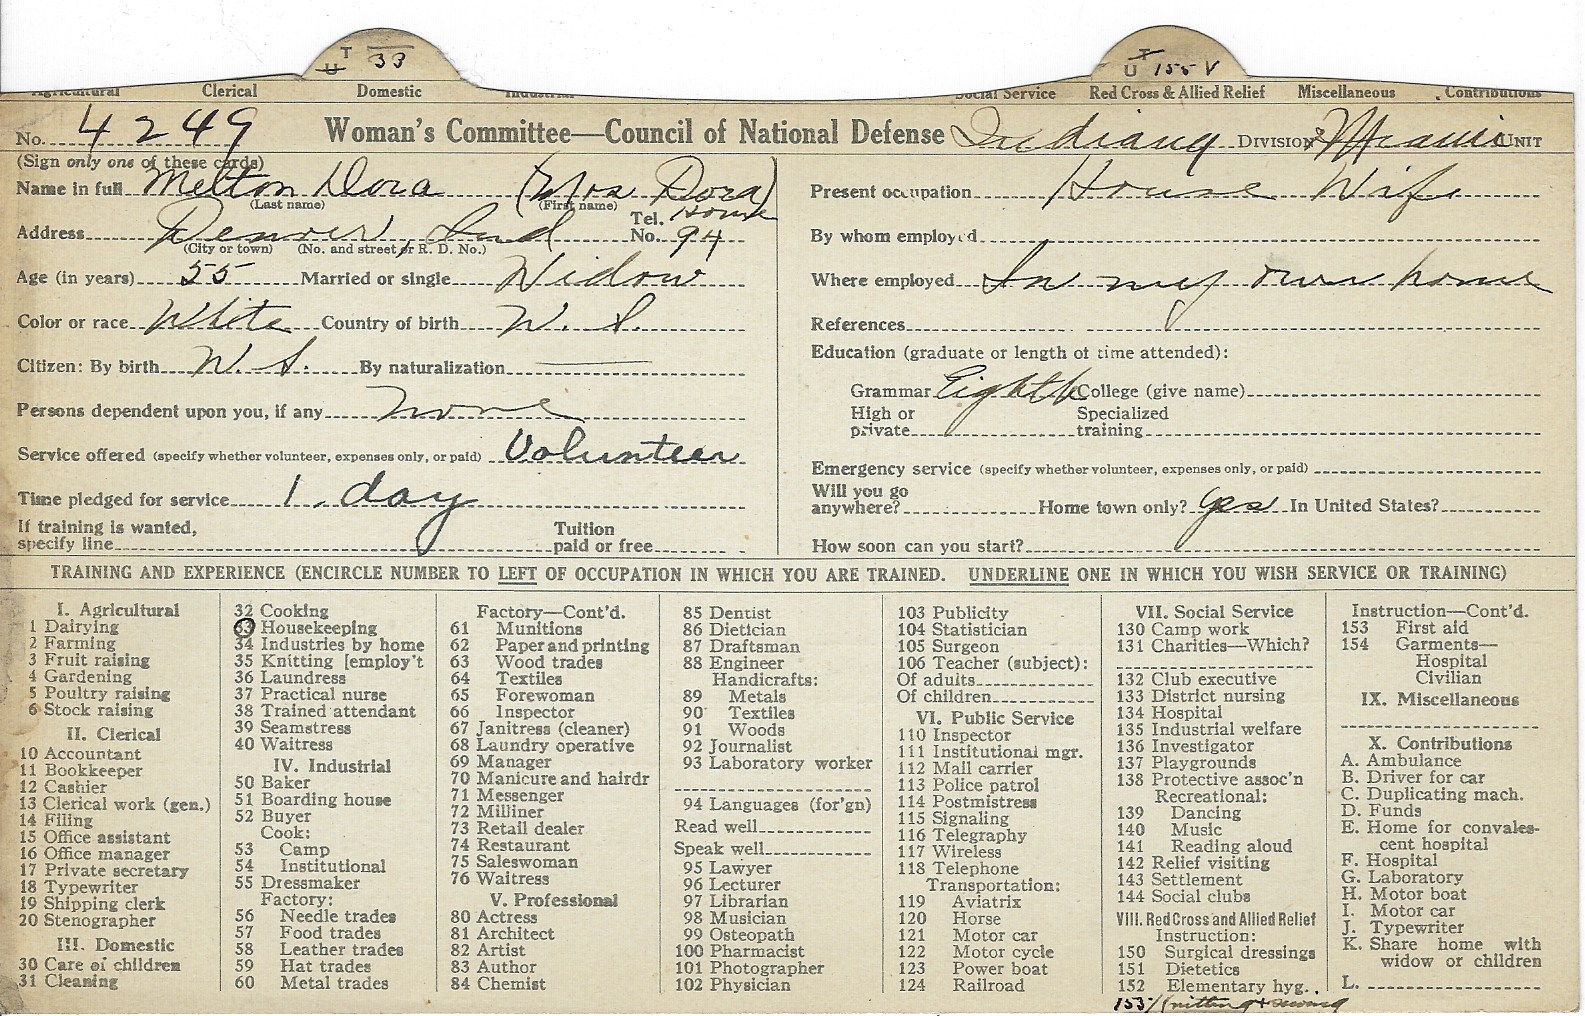 T U 33 T U 155 V
Agricultural Clerical Domestic Industrial Social Service Red Cross & Allied Relief Miscellaneous Contributions
No. 4249 Woman's Committee—Council of National Defense Indiana DIVISION Miami UNIT
(Sign only one of these cards)
Name in full Melton Dora (Mrs Dora)
(Last name) (First name)
Address Denver, Ind Tel. No. House 94
(City or town) (No. and street or R. D. No.)
Age (in years) 55 Married or single Widow
Color or race White Country of birth U. S.
Citizen: By birth U. S. By naturalization
Persons dependent upon you, if any none
Service offered (specify whether volunteer, expenses only, or paid) Volunteer
Time pledged for service 1 day
If training is wanted, Tuition
specify line paid or free
Present occupation House Wife
By whom employed
Where employed In my own home
References
Education (graduate or length of time attended):
Grammar Eighth College (give name)
High or Specialized
private training
Emergency service (specify whether volunteer, expenses only, or paid)
Will you go
anywhere? Home town only? yes In United States?
How soon can you start?
TRAINING AND EXPERIENCE (ENCIRCLE NUMBER TO LEFT OF OCCUPATION IN WHICH YOU ARE TRAINED. UNDERLINE ONE IN WHICH YOU WISH SERVICE OR TRAINING)
I. Agricultural
1 Dairying
2 Farming
3 Fruit raising
4 Gardening
5 Poultry raising
6 Stock raising
II. Clerical
10 Accountant
11 Bookkeeper
12 Cashier
13 Clerical work (gen.)
14 Filing
15 Office assistant
16 Office manager
17 Private secretary
18 Typewriter
19 Shipping clerk
20 Stenographer
III. Domestic
30 Care of children
31 Cleaning
32 Cooking
33 Housekeeping
34 Industries by home
35 Knitting [employ't
36 Laundress
37 Practical nurse
38 Trained attendant
39 Seamstress
40 Waitress
IV. Industrial
50 Baker
51 Boarding house
52 Buyer
Cook:
53 Camp
54 Institutional
55 Dressmaker
Factory:
56 Needle trades
57 Food trades
58 Leather trades
59 Hat trades
60 Metal trades
Factory—Cont'd.
61 Munitions
62 Paper and printing
63 Wood trades
64 Textiles
65 Forewoman
66 Inspector
67 Janitress (cleaner)
68 Laundry operative
69 Manager
70 Manicure and hairdr
71 Messenger
72 Milliner
73 Retail dealer
74 Restaurant
75 Saleswoman
76 Waitress
V. Professional
80 Actress
81 Architect
82 Artist
83 Author
84 Chemist
85 Dentist
86 Dietician
87 Draftsman
88 Engineer
Handicrafts:
89 Metals
90 Textiles
91 Woods
92 Journalist
93 Laboratory worker
94 Languages (for'gn)
Read well
Speak well
95 Lawyer
96 Lecturer
97 Librarian
98 Musician
99 Osteopath
100 Pharmacist
101 Photographer
102 Physician
103 Publicity
104 Statistician
105 Surgeon
106 Teacher (subject):
Of adults
Of children
VI. Public Service
110 Inspector
111 Institutional mgr.
112 Mail carrier
113 Police patrol
114 Postmistress
115 Signaling
116 Telegraphy
117 Wireless
118 Telephone
Transportation:
119 Aviatrix
120 Horse
121 Motor car
122 Motor cycle
123 Power boat
124 Railroad
VII. Social Service
130 Camp work
131 Charities—Which?
132 Club executive
133 District nursing
134 Hospital
135 Industrial welfare
136 Investigator
137 Playgrounds
138 Protective assoc'n
Recreational:
139 Dancing
140 Music
141 Reading aloud
142 Relief visiting
143 Settlement
144 Social clubs
VIII. Red Cross and Allied Relief
Instruction:
150 Surgical dressings
151 Dietetics
152 Elementary hyg.
155 Knitting + sewing
Instruction—Cont'd.
153 First aid
154 Garments—
Hospital
Civilian
IX. Miscellaneous
X. Contributions
A. Ambulance
B. Driver for car
C. Duplicating mach.
D. Funds
E. Home for convales-
cent hospital
F. Hospital
G. Laboratory
H. Motor boat
I. Motor car
J. Typewriter
K. Share home with
widow or children
L.